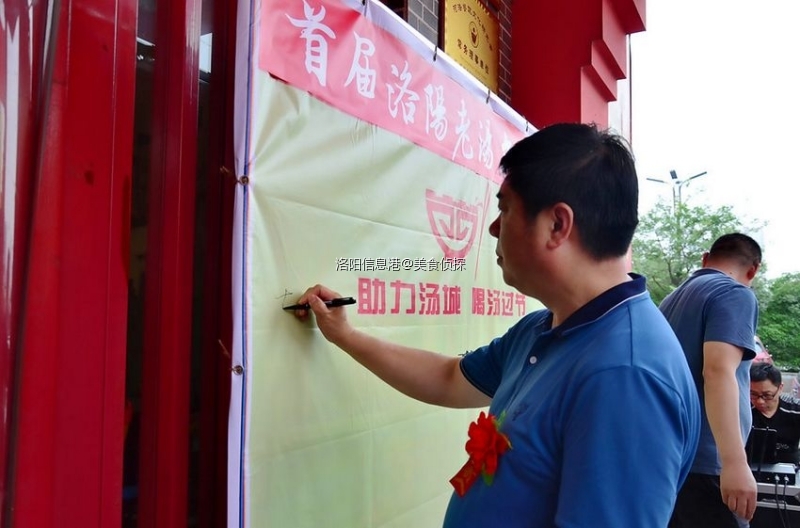 首届洛陽老湯
洛阳信息港@美食侦探
助力汤城 喝汤过节